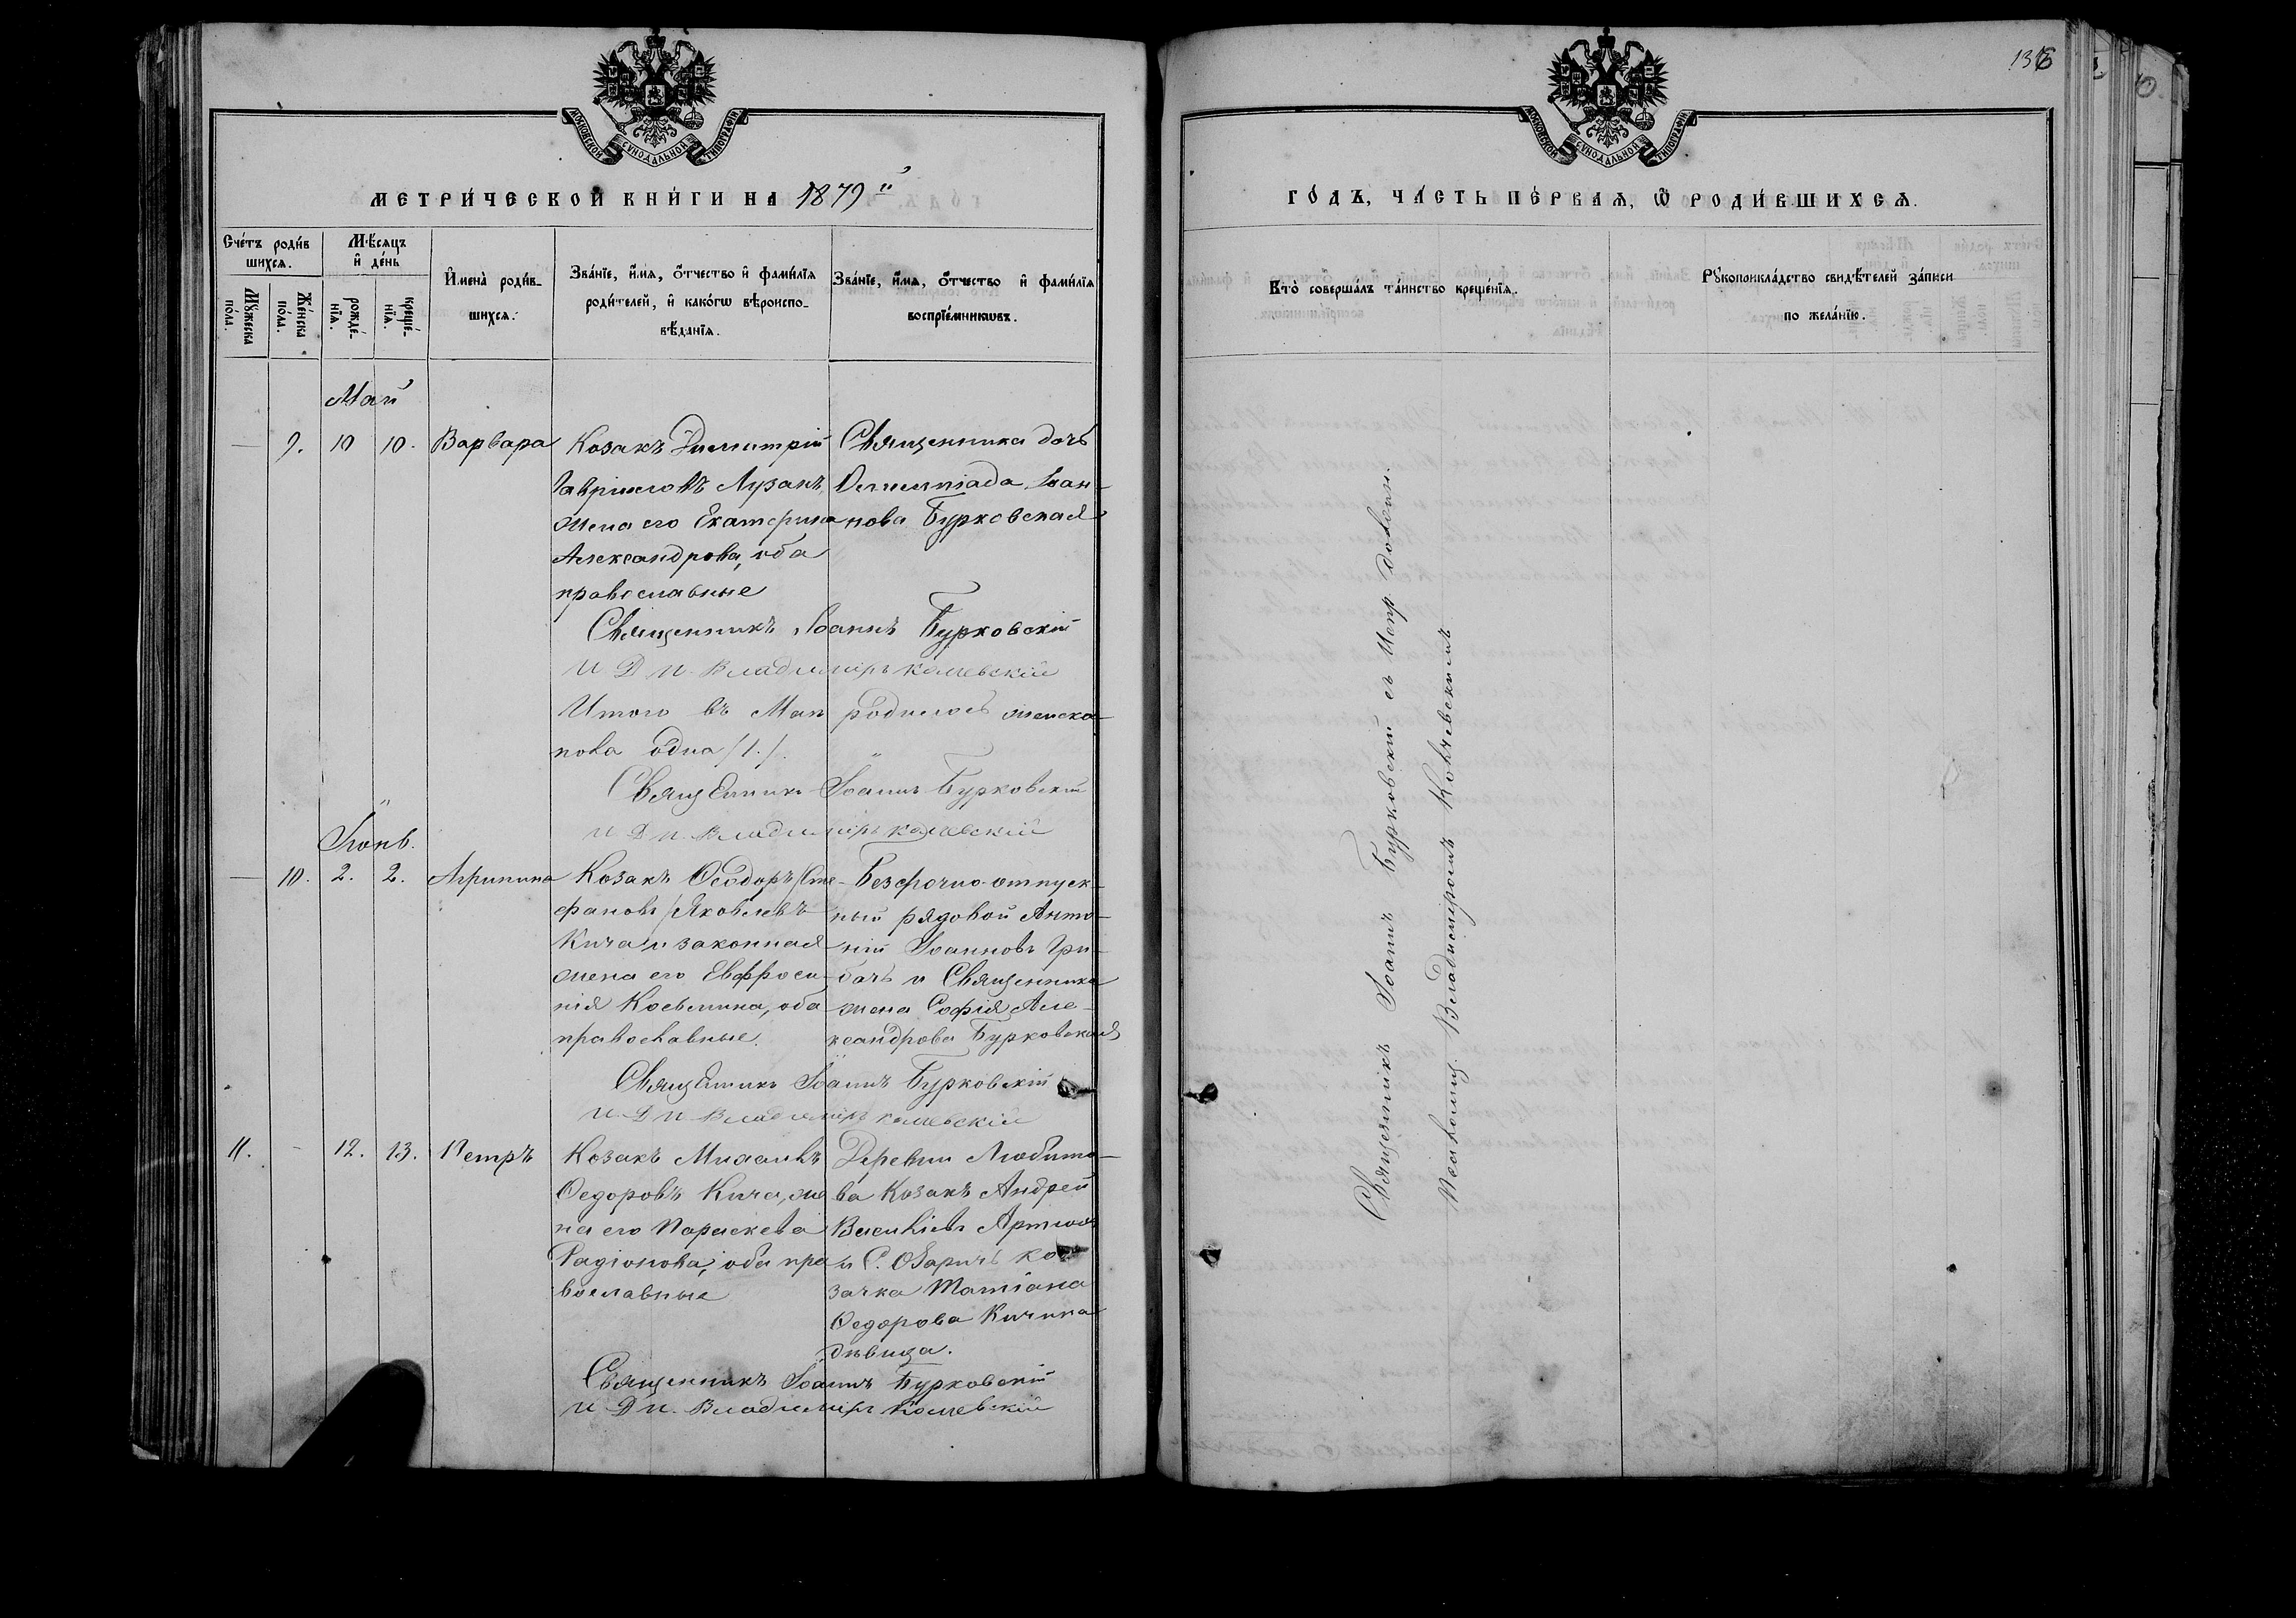 МОСКОВСКОЙ СѴНОДАЛЬНОЙ ТИПОГРАФІИ
МЕТРИ́ЧЕСКОЙ КНИ́ГИ НА 1879й
Сче́тъ роди́в
шихсѧ.
Мꙋ́жеска
по́ла.
Же́нска
по́ла.
Мѣ́сяцъ
и҆ де́нь
рожде́-
нїѧ.
креще́-
нїѧ.
И҆мена̀ роди́в-
шихсѧ.
Зва́нїе, и҆́мѧ, ѻ҆́тчество и҆ фами́лїѧ
роди́телей, и҆ како́гѡ вѣроиспо-
вѣ́данїѧ.
Зва́нїе, и҆́мѧ, ѻ҆́тчество и҆ фами́лїѧ
воспрїе́мникѡвъ.
Май
— 9. 10 10. Варвара
Козакъ Димитрій
Гавриловъ Лузанъ,
жена его Екатерина
Александрова, оба
православные
Священника дочь
Олимпіада Іоан-
нова Бурковская
Священникъ Іоаннъ Бурковскій
И Д П. Владиміръ
Итого въ Маи родилось женска
пола одна /1./.
Священникъ Іоаннъ Бурковскій
И Д П. Владиміръ
Іюнь.
— 10. 2. 2. Агрипина
Козакъ Ѳеодоръ /Сте-
фановъ/ Яковлевъ
Кича и законная
жена его Евфроси-
нія Косьмина, оба
православные.
Безсрочно-отпуск-
ный рядовой Анто-
ній Іоанновъ Гри-
бачъ и Священника
жена Софія Але-
ксандрова Бурковская
Священникъ Іоаннъ Бурковскій
И. Д П Владиміръ
11. - 12. 13. Петръ
Козакъ Михаилъ
Ѳедоровъ Кича, же
на его Параскева
Радіонова, оба пра
вославные
Деревни Любито-
ва Козакъ Андрей
Васильевъ
и С. Озаричъ ко
зачка Татіана
Ѳедорова Кичина
дѣвица.
Священникъ Іоаннъ Бурковскій
И Д П. Владиміръ
136
МОСКОВСКОЙ СѴНОДАЛЬНОЙ ТИПОГРАФІИ
ГО́ДЪ, ЧА́СТЬ ПЕ́РВАѦ, Ѡ҆ РОДИ́ВШИХСѦ.
Кто̀ соверша́лъ та́инство креще́нїѧ.
Рꙋкоприкла́дство свидѣ́телей за́писи
по жела́нїю.
Священникъ Іоаннъ Бурковскій съ Испр. должн.
Псаломщ. Владиміромъ